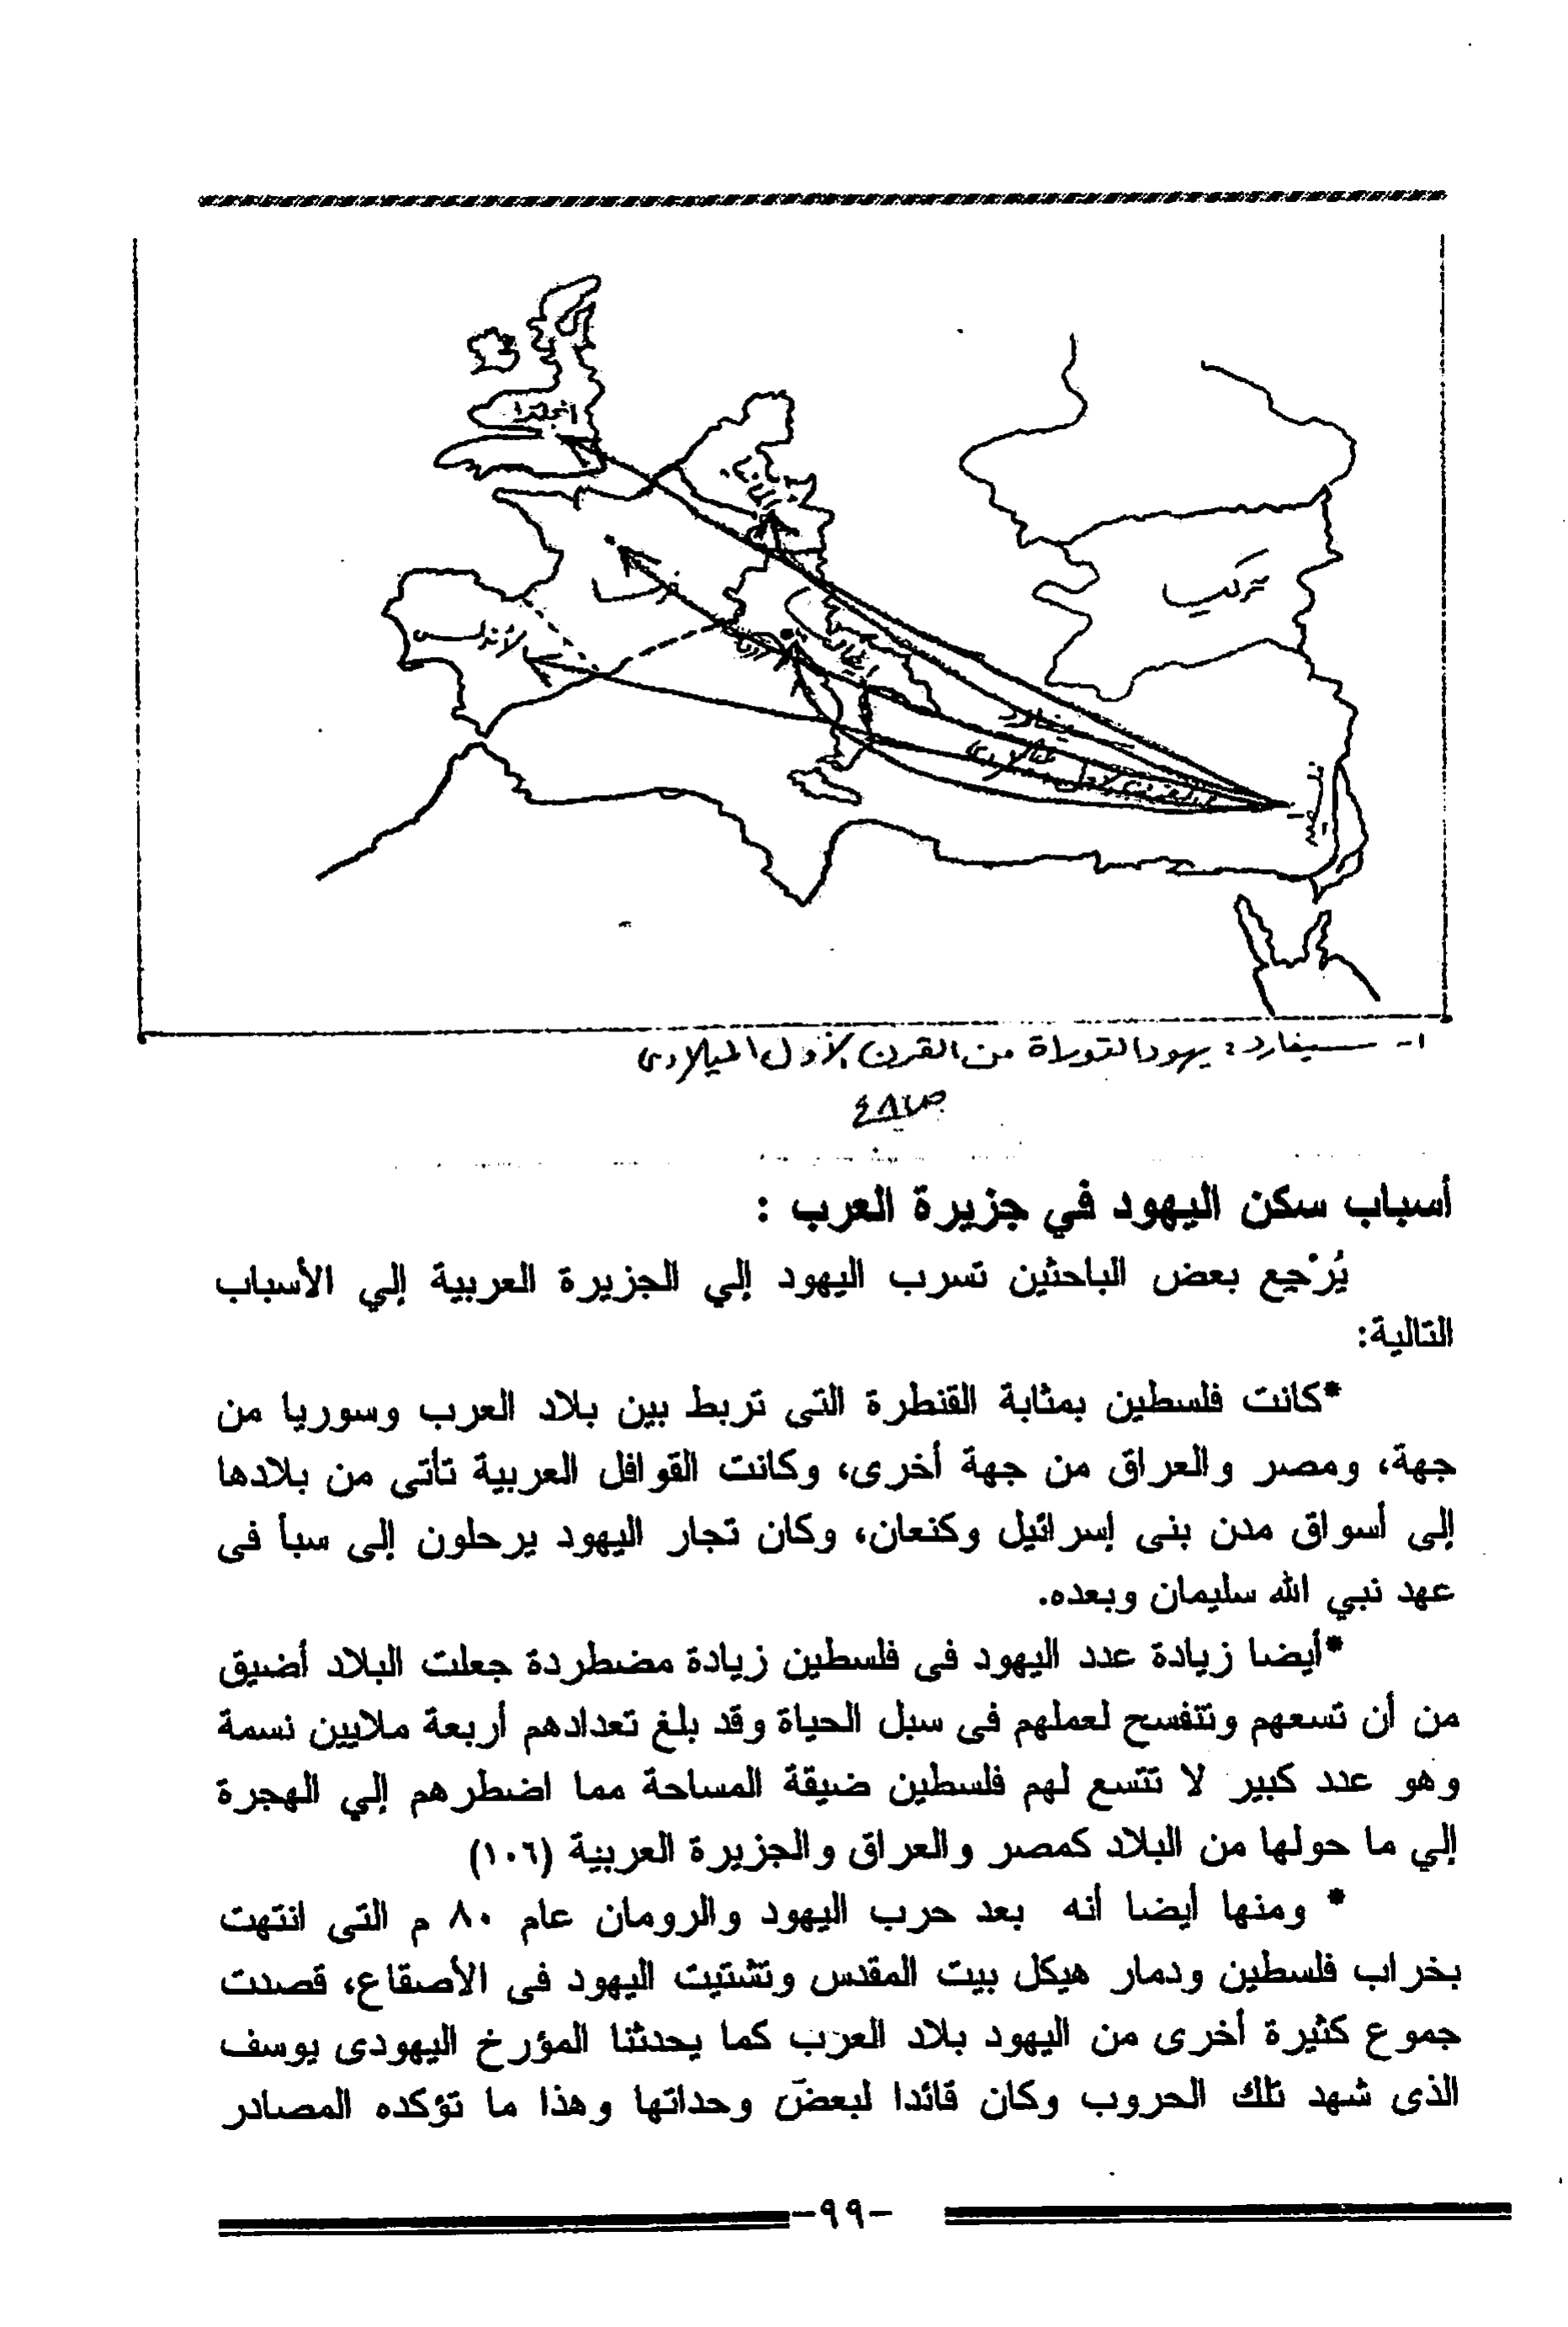 انجلترا
ألمانيا
فرنسا
تركيا
الأندلس
إيطاليا
روما
سيفارد
القرن الأول الميلادى
فلسطين
١- سيفارد: يهود التوراة من القرن الأول الميلادى
ص ٤٨
أسباب سكن اليهود في جزيرة العرب :
يُرْجِع بعض الباحثين تسرب اليهود إلي الجزيرة العربية إلي الأسباب
التالية:
*كانت فلسطين بمثابة القنطرة التى تربط بين بلاد العرب وسوريا من
جهة، ومصر والعراق من جهة أخرى، وكانت القوافل العربية تأتى من بلادها
إلى أسواق مدن بنى إسرائيل وكنعان، وكان تجار اليهود يرحلون إلى سبأ فى
عهد نبي الله سليمان وبعده.
*أيضا زيادة عدد اليهود فى فلسطين زيادة مضطردة جعلت البلاد أضيق
من أن تسعهم وتتفسح لعملهم فى سبل الحياة وقد بلغ تعدادهم أربعة ملايين نسمة
وهو عدد كبير لا تتسع لهم فلسطين ضيقة المساحة مما اضطرهم إلي الهجرة
إلي ما حولها من البلاد كمصر والعراق والجزيرة العربية (١٠٦)
* ومنها أيضا أنه بعد حرب اليهود والرومان عام ٨٠ م التى انتهت
بخراب فلسطين ودمار هيكل بيت المقدس وتشتيت اليهود فى الأصقاع، قصدت
جموع كثيرة أخرى من اليهود بلاد العرب كما يحدثنا المؤرخ اليهودى يوسف
الذى شهد تلك الحروب وكان قائدا لبعض وحداتها وهذا ما تؤكده المصادر
-٩٩-